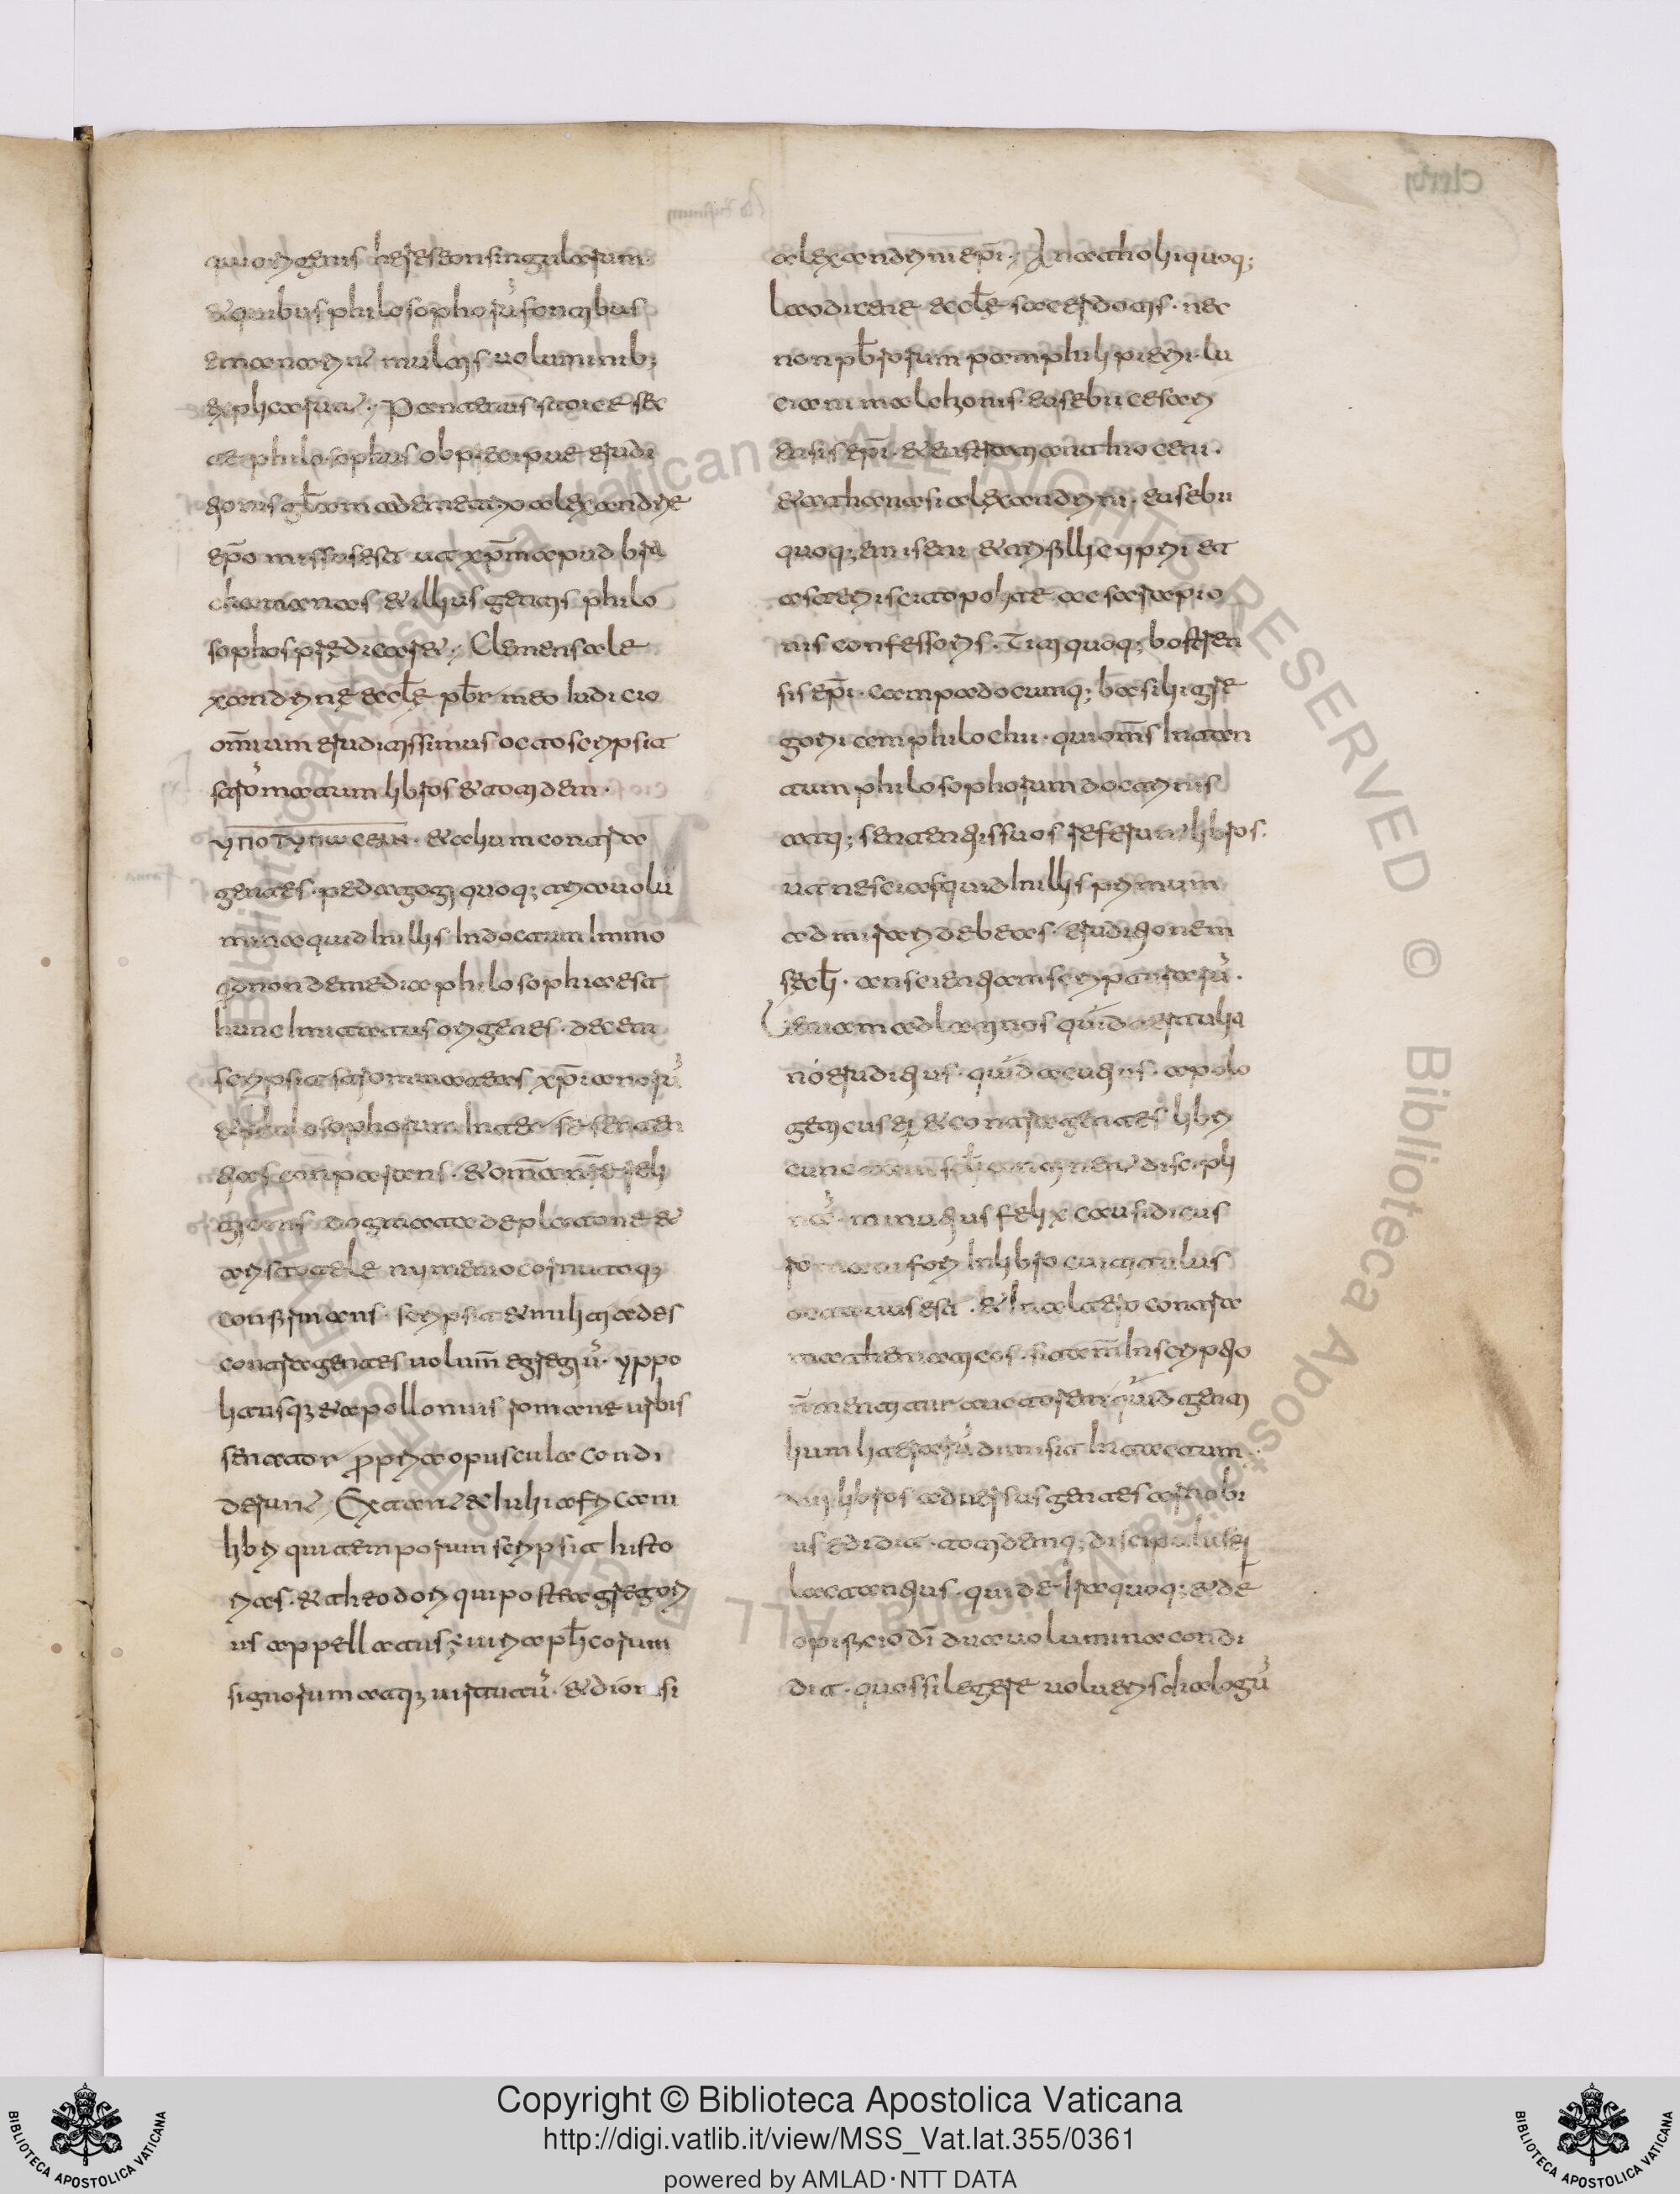 qui origenis hereseon singularum
& quibus philosophorũ fontibus
emanarint multis uoluminib;
explicarunt Pantenus stoice sec
te philosophus ob precipue erudi
tionis gl̄am ad emetrio alexandrie
ep̄o missus est ut xp̄m apud bra
chamanas & illius gentis philo
sophos predicaret Clemens ale
xandrinę eccl̄ę pb̄r meo Iudicio
om̄ium eruditissimus octo scripsit
stromatum libros & totidem
ypotypωceωn & alium contra
gentes pedagogi quoq; tria uolũ
mina quid In illis Indoctum Immo
qđ non de media philosophia est
hunc Imitatus origenes decem
scripsit stromateas xp̄ianorũ
& philosophorum Inter se senten
tias conparans & om̄ia nr̄e reli
gionis dogmata de platone &
aristotele numenio cornutoq;
confirmans scripsit & miltiades
contra gentes uolum̄ egregiũ yppo
litus q; & apollonius romane urbis
senator ppria opuscula condi
derunt Extant & Iulii africani
libri qui temporum scripsit histo
rias & theodori qui postea gregori
us appellatus ē uiri apl̄icorum
signorum atq; uirtutũ & dionisi
alexandrini ep̄i Anatholi quoq;
laodicene eccl̄ę sacerdotis nec
non pb̄rorum pamphili pieri lu
ciani malchionis eusebii cesari
ensis ep̄i & eustatii antioceni
& athanasi alexandrini eusebii
quoq; emiseni & trifilli cipri et
asteri scitopolite ac sarapio
nis confessoris Titi quoq; bostren
sis ep̄i campadocumq; basili gre
gorii amphilochii qui om̄s Intan
tum philosophorum doctrinis
atq; sententiis suos referunt libros
ut nescias quid In illis primum
admirari debeas eruditionem
sęcli an scientiam scripturarũ
Ueniam ad latinos quid tertulia
no eruditius quid acutius apolo
geticus ei & contra gentes libri
cunctam scl̄i continent discipli
nã minutius felix causidicus
romani fori In libro cui titulus
octauius est & In altero contra
mathematicos si tam̄ Inscriptio
n̄ mentitur auctorem quid genti
lium litterarũ dimisit Intactum
VII libros aduersus gentes arnobi
us edidit totidemq; discipulus ei
lactantius qui de Ira quoq; & de
opificio dī dua uolumina condi
dit quos si legere uolueris dialogũ
Copyright © Biblioteca Apostolica Vaticana
http://digi.vatlib.it/view/MSS_Vat.lat.355/0361
powered by AMLAD·NTT DATA
BIBLIOTECA APOSTOLICA VATICANA
BIBLIOTECA APOSTOLICA VATICANA